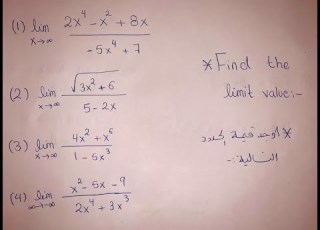 (1) lim x→∞ (2x⁴ - x² + 8x) / (-5x⁴ + 7)
(2) lim x→∞ √(3x² + 6) / (5 - 2x)
(3) lim x→∞ (4x² + x⁶) / (1 - 5x³)
(4) lim x→-∞ (x² - 5x - 9) / (2x⁴ + 3x³)
*Find the
limit value:-
* أوجد قيمة
التالية:-